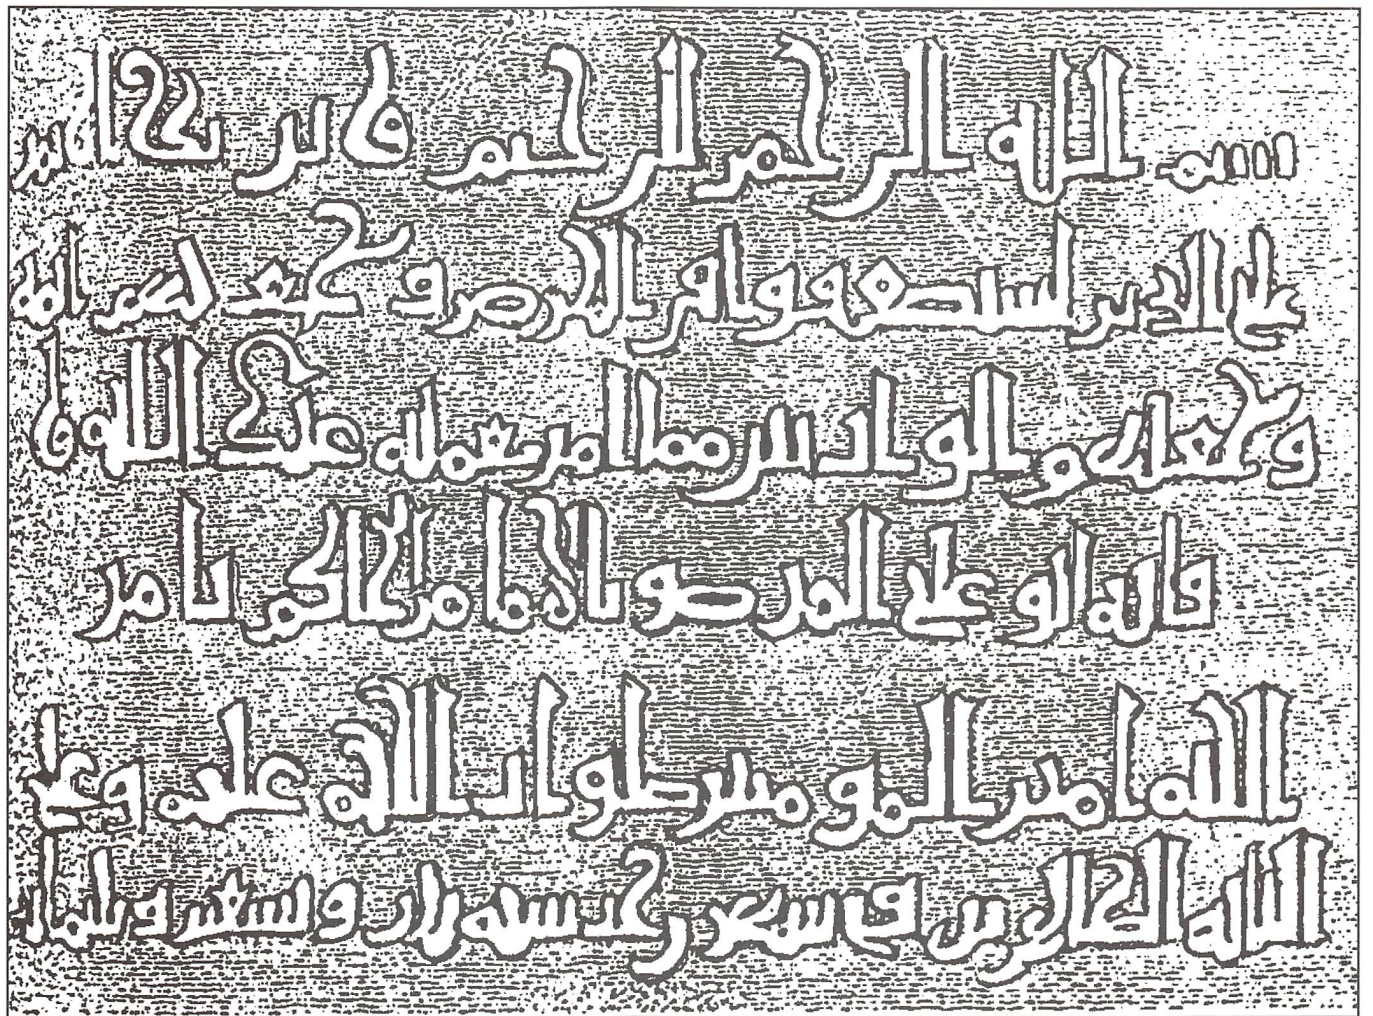 بسم الله الرحمن الرحيم ونريد ان نمن
على الذين استضعفوا في الارض ونجعلهم ائمة
ونجعلهم الوارثين مما امر بعمله عبد الله و
وليه ابو علي المنصور الامام الحاكم بامر
الله امير المومنين صلوات الله عليه وعلى
ابائه الطاهرين في شهر رجب سنة ثلاث وتسعين وثلثمائة